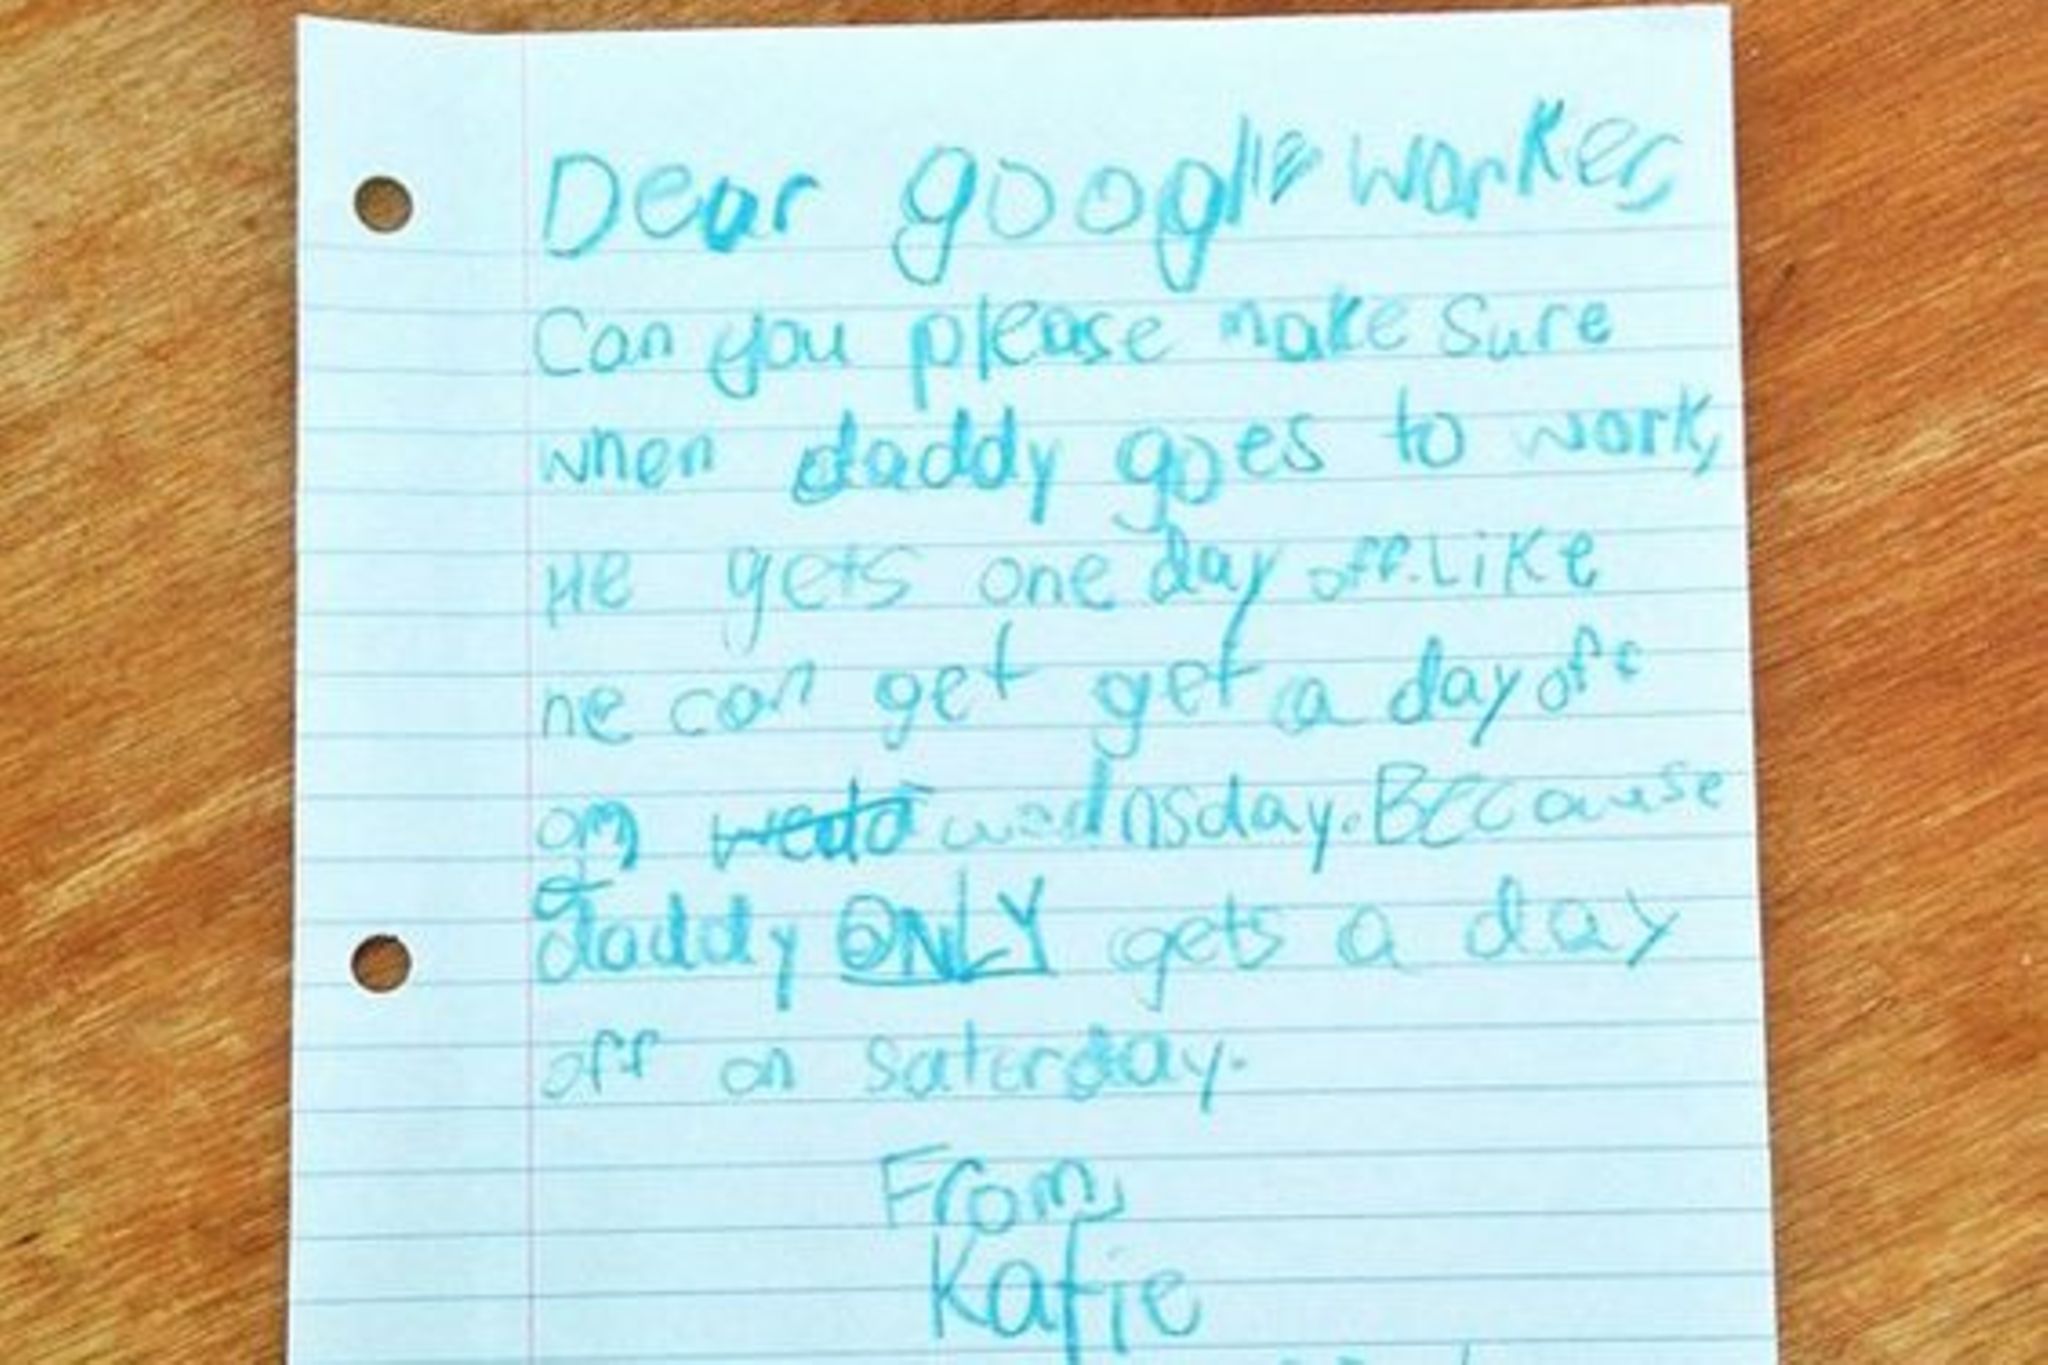 Dear google worker,
Can you please make sure
when daddy goes to work,
He gets one day off. Like
he can get get a day off
on wednsday. Because
daddy ONLY gets a day
off on Saturday.
From,
Katie